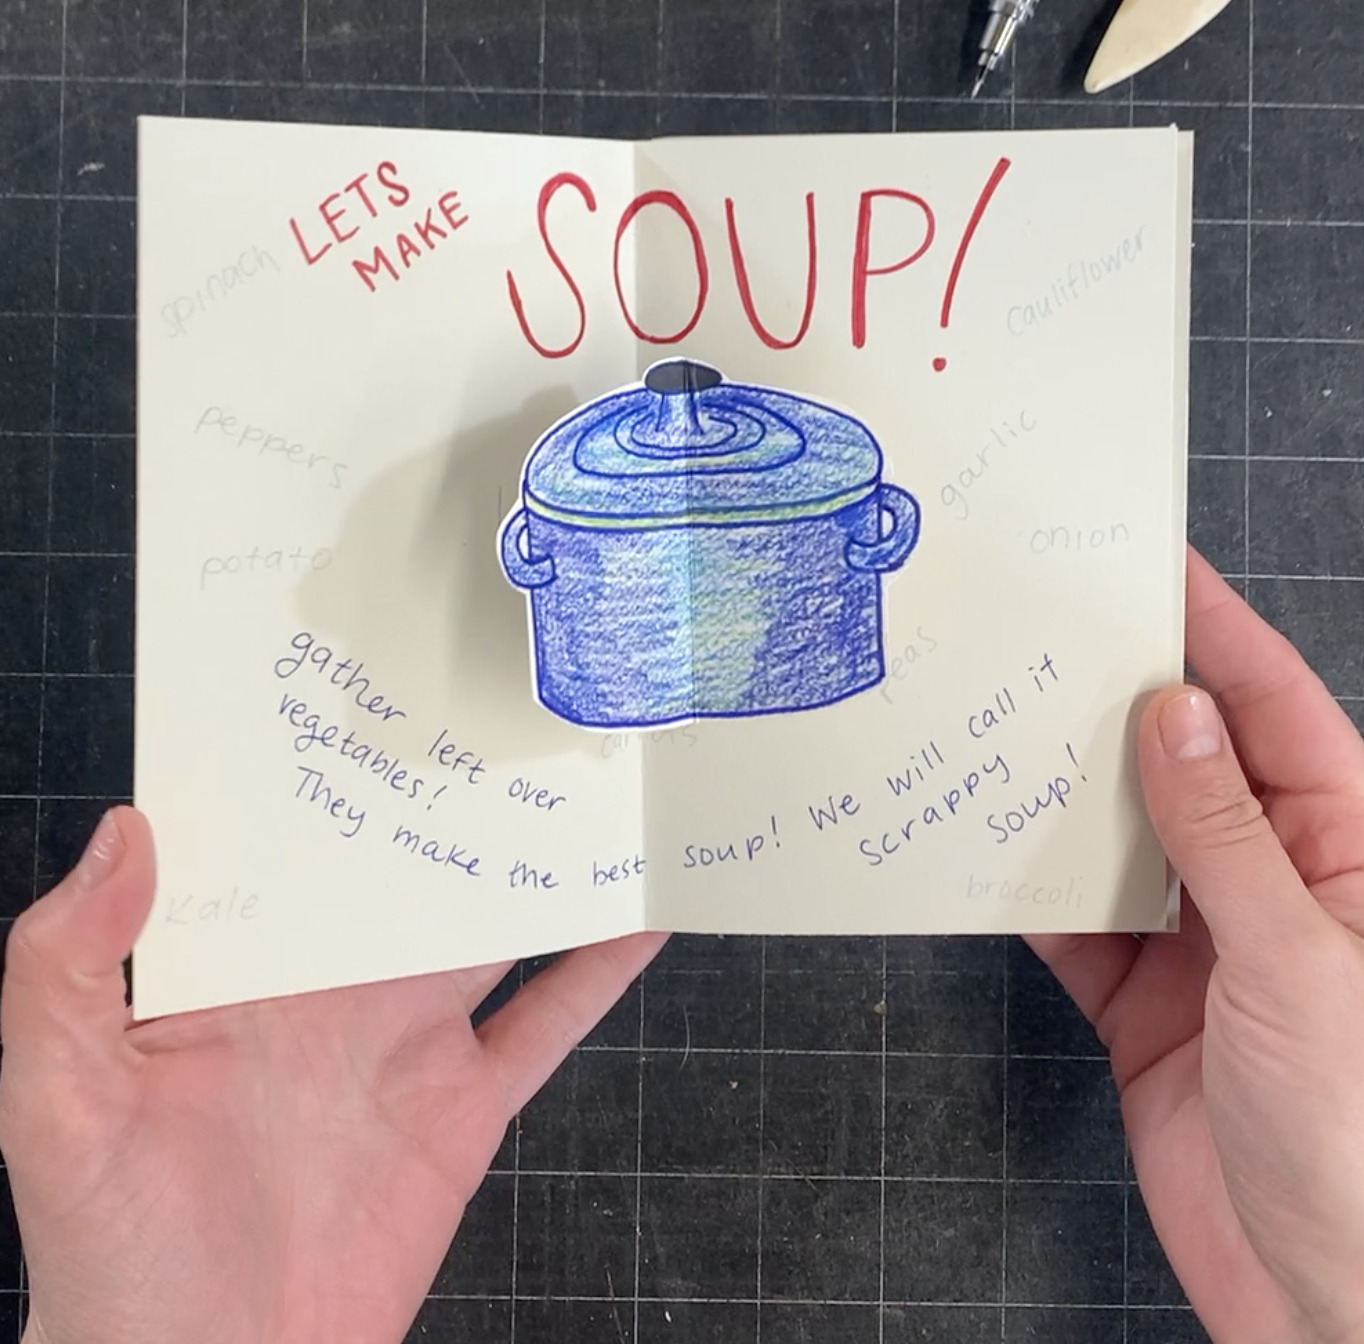 LETS
MAKE
SOUP!
spinach
cauliflower
peppers
garlic
potato
onion
peas
carrots
gather left over
vegetables!
They make the best soup! We will call it
scrappy
soup!
Kale
broccoli